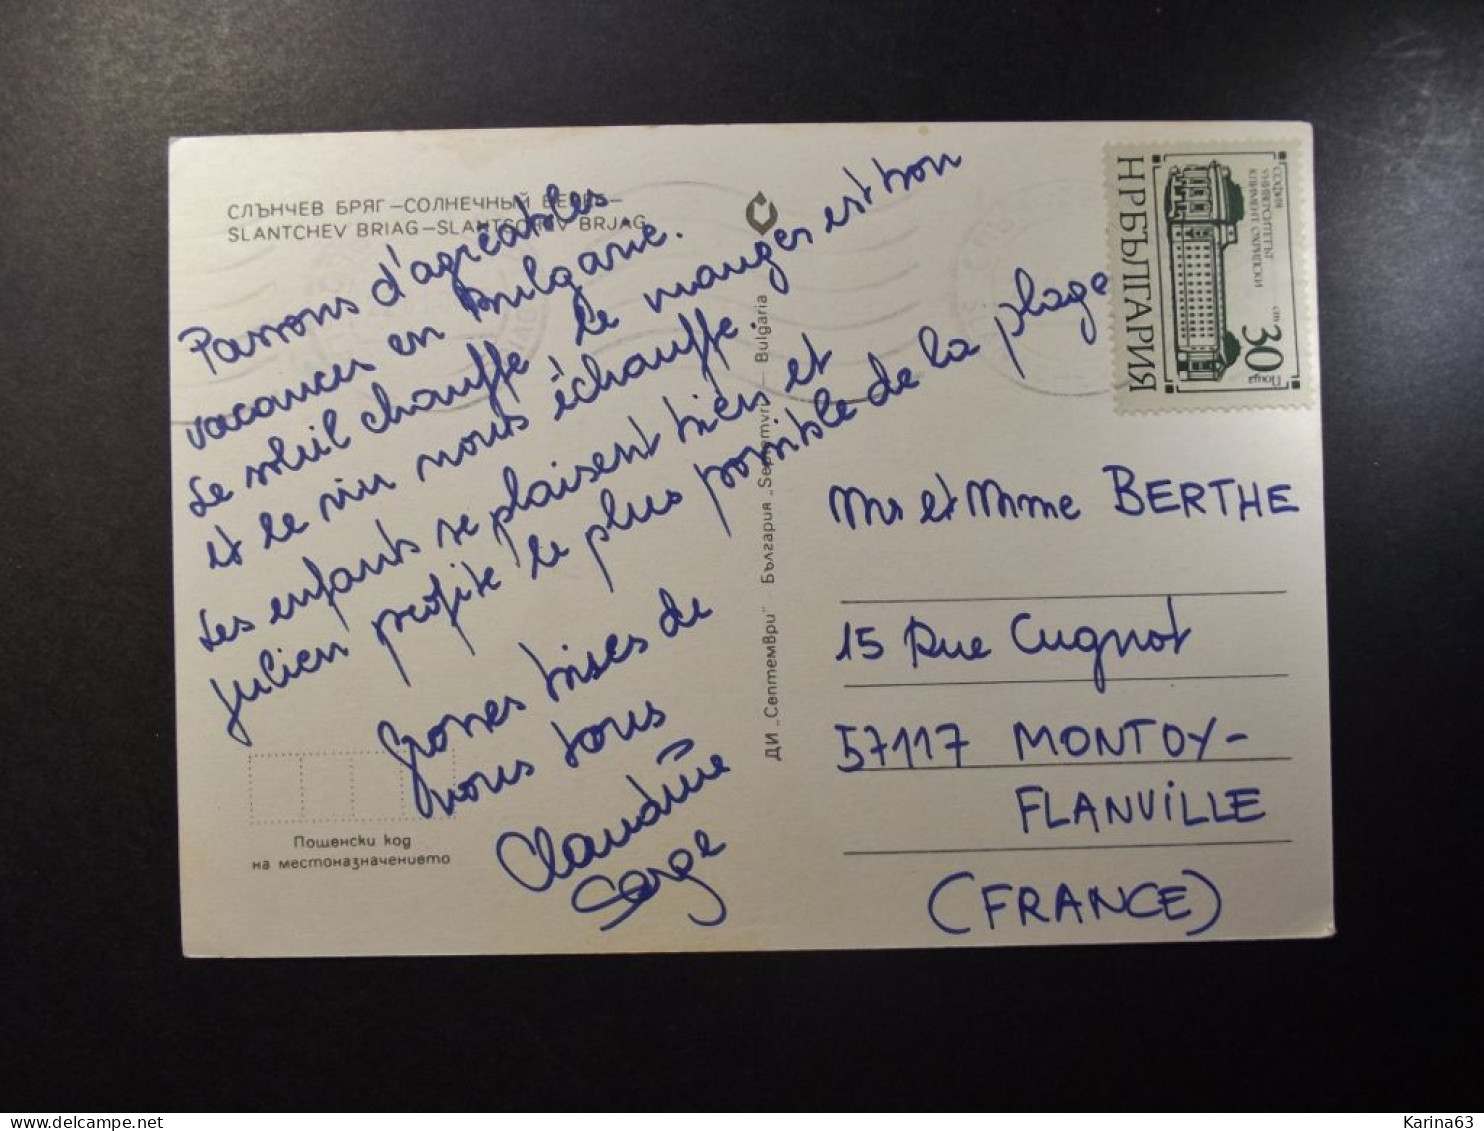 СЛЪНЧЕВ БРЯГ—СОЛНЕЧНЫЙ БЕРЕГ—
SLANTCHEV BRIAG—SLANTSCHEV BRJAG
Passons d'agréables
vacances en Bulgarie.
Le soleil chauffe le manger est bon
et le vin nous échauffe
Les enfants se plaisent bien et
Julien profite le plus possible de la plage
Grosses bises de
nous tous
Claudine
Serge
Пощенски код
на местоназначението
ДИ „Септември" - България „Septemvri" — Bulgaria
НР БЪЛГАРИЯ
СОФИЯ
УНИВЕРСИТЕТЪТ
КЛИМЕНТ ОХРИДСКИ
30 ст
Поща
Mr et Mme BERTHE
15 Rue Cugnot
57117 MONTOY-
FLANVILLE
(FRANCE)
delcampe.net
Karina63